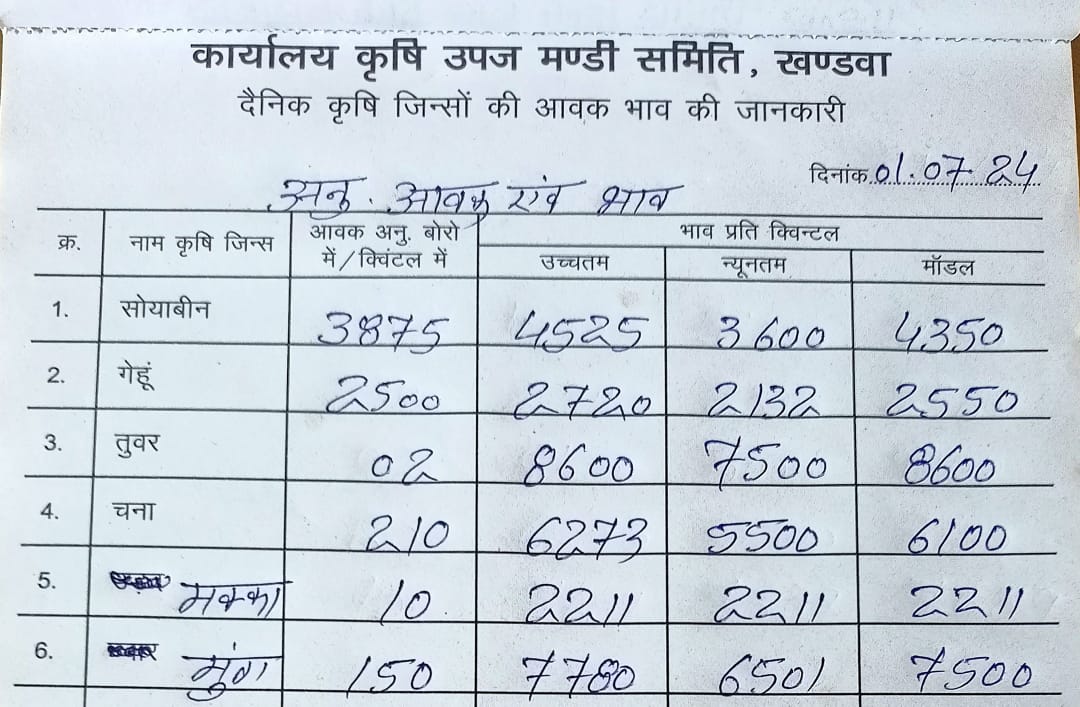 कार्यालय कृषि उपज मण्डी समिति, खण्डवा
दैनिक कृषि जिन्सों की आवक भाव की जानकारी
दिनांक 01.07.24
अनु. आवक एंव भाव
क्र. नाम कृषि जिन्स आवक अनु. बोरो में/क्विंटल में भाव प्रति क्विन्टल
उच्चतम न्यूनतम मॉडल
1. सोयाबीन 3875 4525 3600 4350
2. गेहूं 2500 2720 2132 2550
3. तुवर 02 8600 7500 8600
4. चना 210 6273 5500 6100
5. मक्का 10 2211 2211 2211
6. मुंग 150 7780 6501 7500